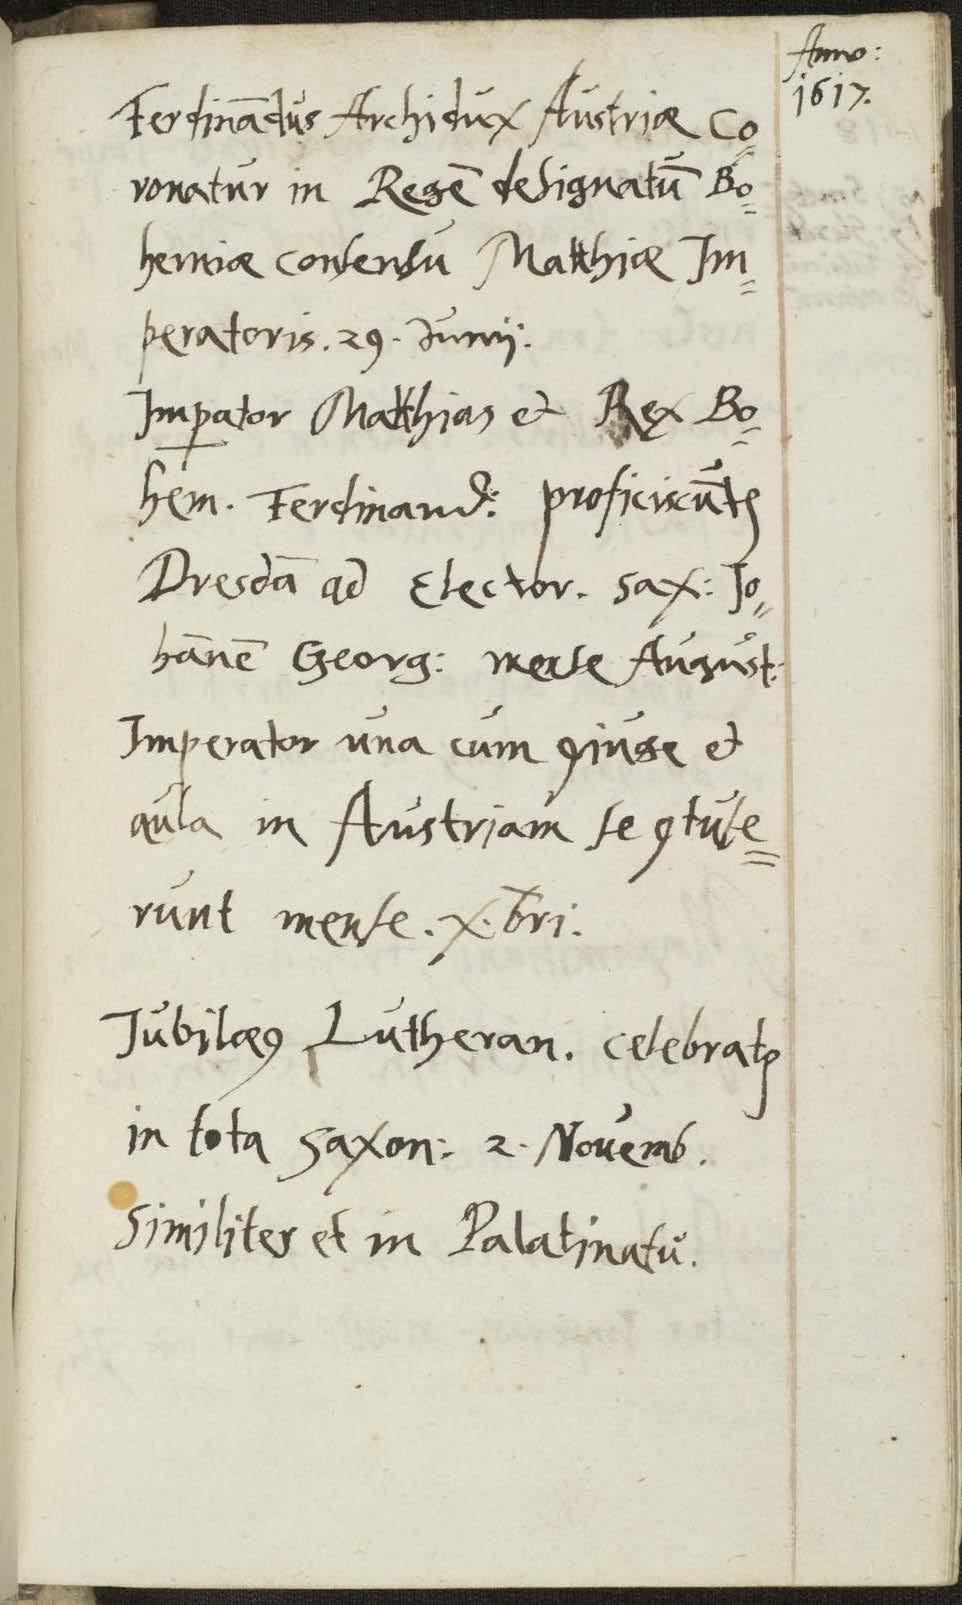 Anno:
1617.
Ferdinādus Archidux Austriæ Co=
ronatur in Regē designatū Bo=
hemiæ consensu Matthiæ Im=
peratoris. 29. Junij:
Imꝑator Matthias et Rex Bo=
hem. Ferdinand: proficiscūtꝫ
Dresdā ad Elector. Sax: Jo=
hānē Georg: mense August:
Imperator una cum ꝯiuge et
aula in Austriam se ꝯtule=
runt mense. X.bri.
Jubilæꝰ Lutheran. celebratꝰ
in tota Saxon: 2. Novemb.
Similiter et in Palatinatu.